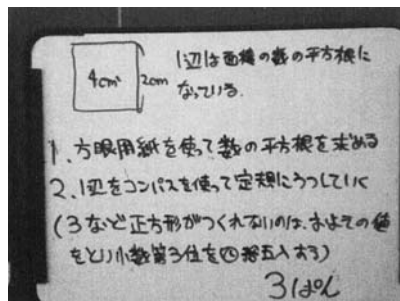 4cm² 2cm
1辺は面積の数の平方根に
なっている.
1、方眼用紙を使って数の平方根を求める
2、1辺をコンパスを使って定規にうつしていく
(3など正方形がつくれないのは、およその値
をとり小数第3位を四捨五入する)
3ぱん